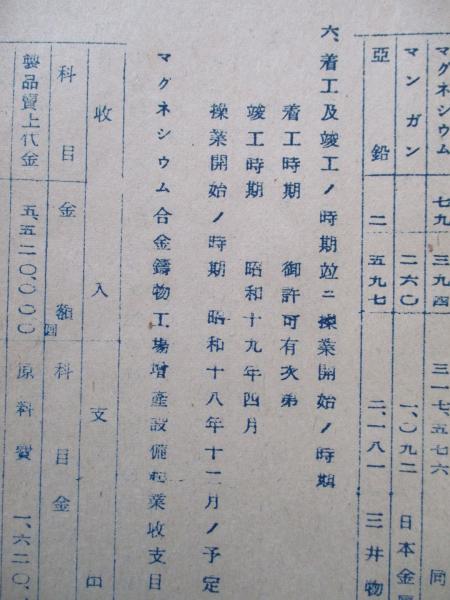 マグネシウム 七九 三九四 三一七、五七六 同
マンガン 二六〇 一、〇九二 日本金属
亞鉛 二 五九七 二、一八一 三井物
六、着工及竣工ノ時期竝ニ操業開始ノ時期
着工時期 御許可有次第
竣工時期 昭和十九年四月
操業開始ノ時期 昭和十八年十二月ノ予定
マグネシウム合金鑄物工場增產設備起業收支目
收入 支出
科目 金額 科目 金
製品賣上代金 五、五二〇、〇〇〇圓 原料費 一、六二〇、